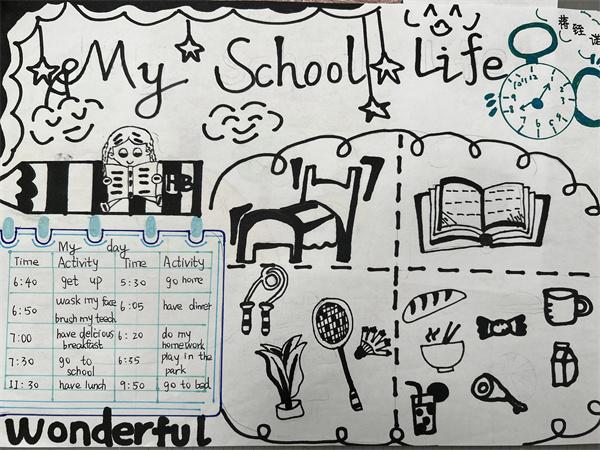 My School Life
蒋
HB
My day
Time Activity Time Activity
6:40 get up 5:30 go home
6:50 wask my face 6:05 have dinner
brush my teech
7:00 have delcious 6:20 do my
breakfast homework
7:30 go to 6:35 play in the
school park
11:30 have lunch 9:50 go to bed
Wonderful